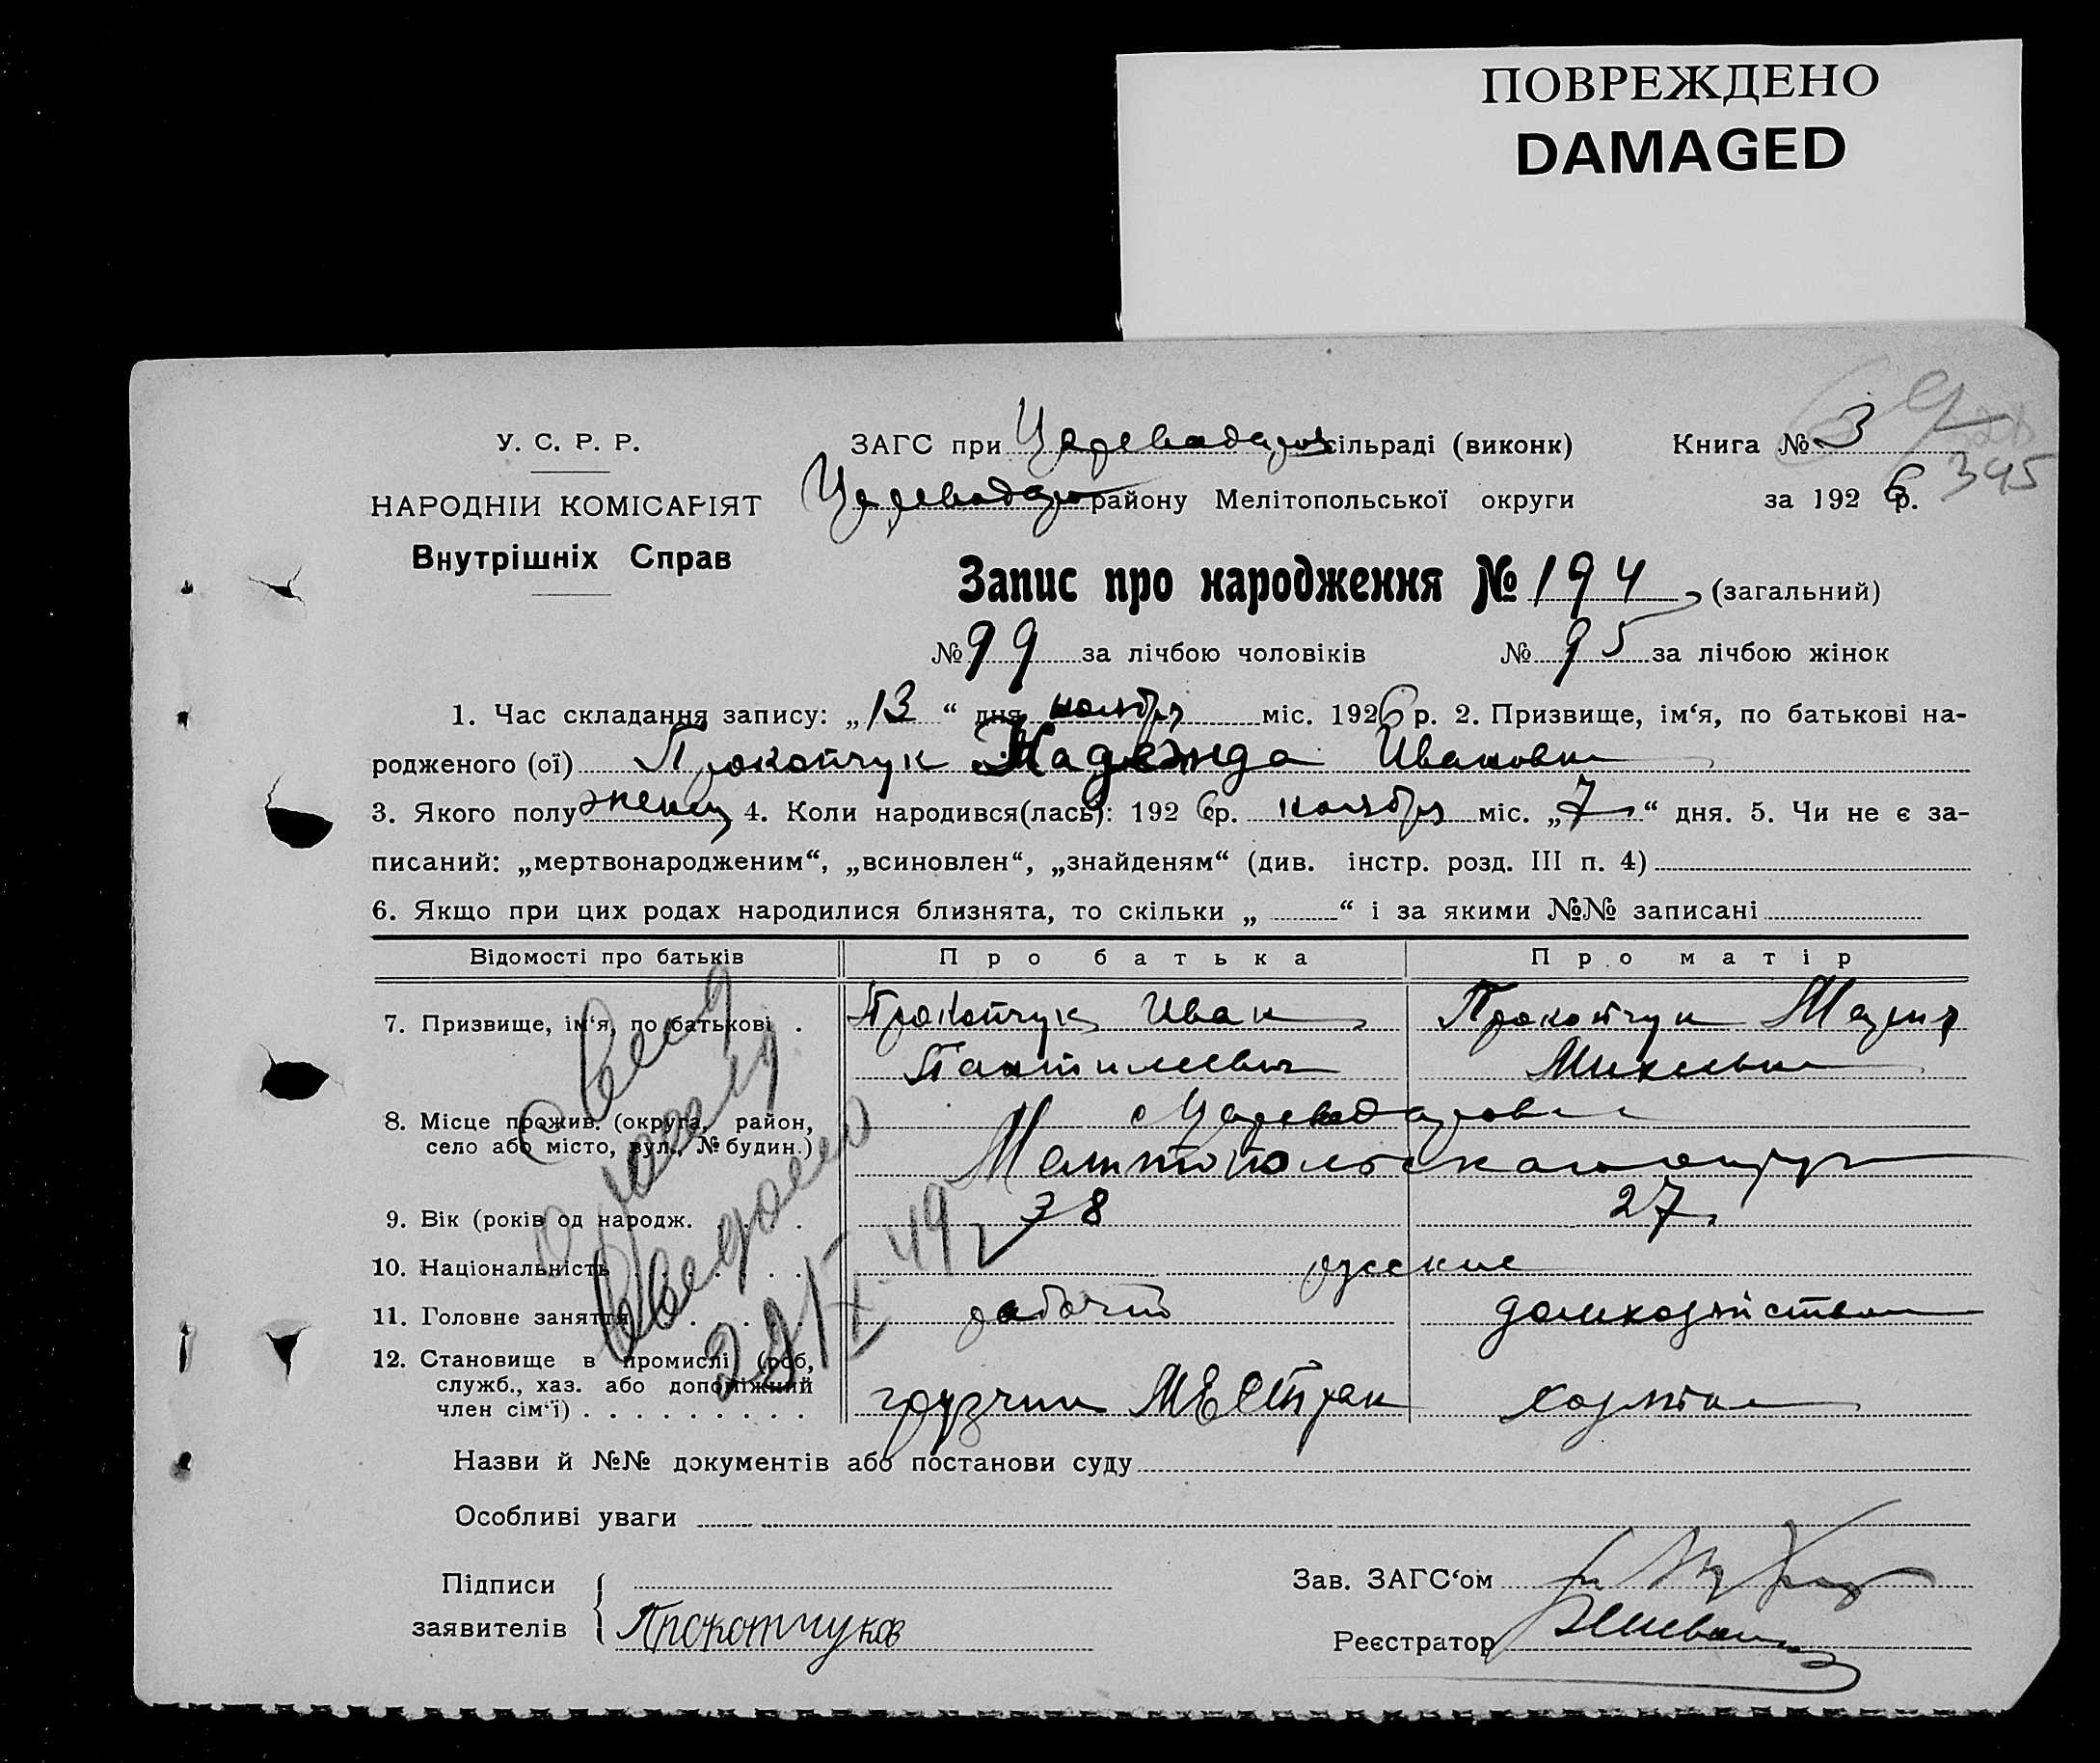 ПОВРЕЖДЕНО
DAMAGED
У. С. Р. Р.
НАРОДНІЙ КОМІСАРІЯТ
Внутрішніх Справ
ЗАГС при Царевадаров сільраді (виконк)
Царевадаров району Мелітопольської округи
Книга № 3
за 1926 р.
395
Запис про народження № 194 (загальний)
№ 99 за лічбою чоловіків № 95 за лічбою жінок
1. Час складання запису: „13“ дня ноября міс. 1926 р. 2. Призвище, ім‘я, по батькові на-
родженого (ої) Прокопчук Надежда Ивановна
3. Якого полу женск 4. Коли народився(лась): 1926 р. ноября міс. „7“ дня. 5. Чи не є за-
писаний: „мертвонародженим“, „всиновлен“, „знайденям“ (див. інстр. розд. III п. 4)
6. Якщо при цих родах народилися близнята, то скільки „ “ і за якими №№ записані
Відомості про батьків Про батька Про матір
7. Призвище, ім‘я, по батькові . Прокопчук Иван Прокопчук Мария
Михеевна
8. Місце прожив. (округа, район,
село або місто, вул., № будин.)
с Царевадаровка
Мелитопольского округа
9. Вік (років од народж. . . . 38 27
10. Національність . . . . . русские
11. Головне заняття . . . . рабочий домхозяйством
12. Становище в промислі (роб,
служб., хаз. або допоміжний
член сім‘ї) . . . . . . . . . грузчик
49
Назви й №№ документів або постанови суду
Особливі уваги
Підписи
заявителів Прокопчуков
Зав. ЗАГС‘ом
Реєстратор